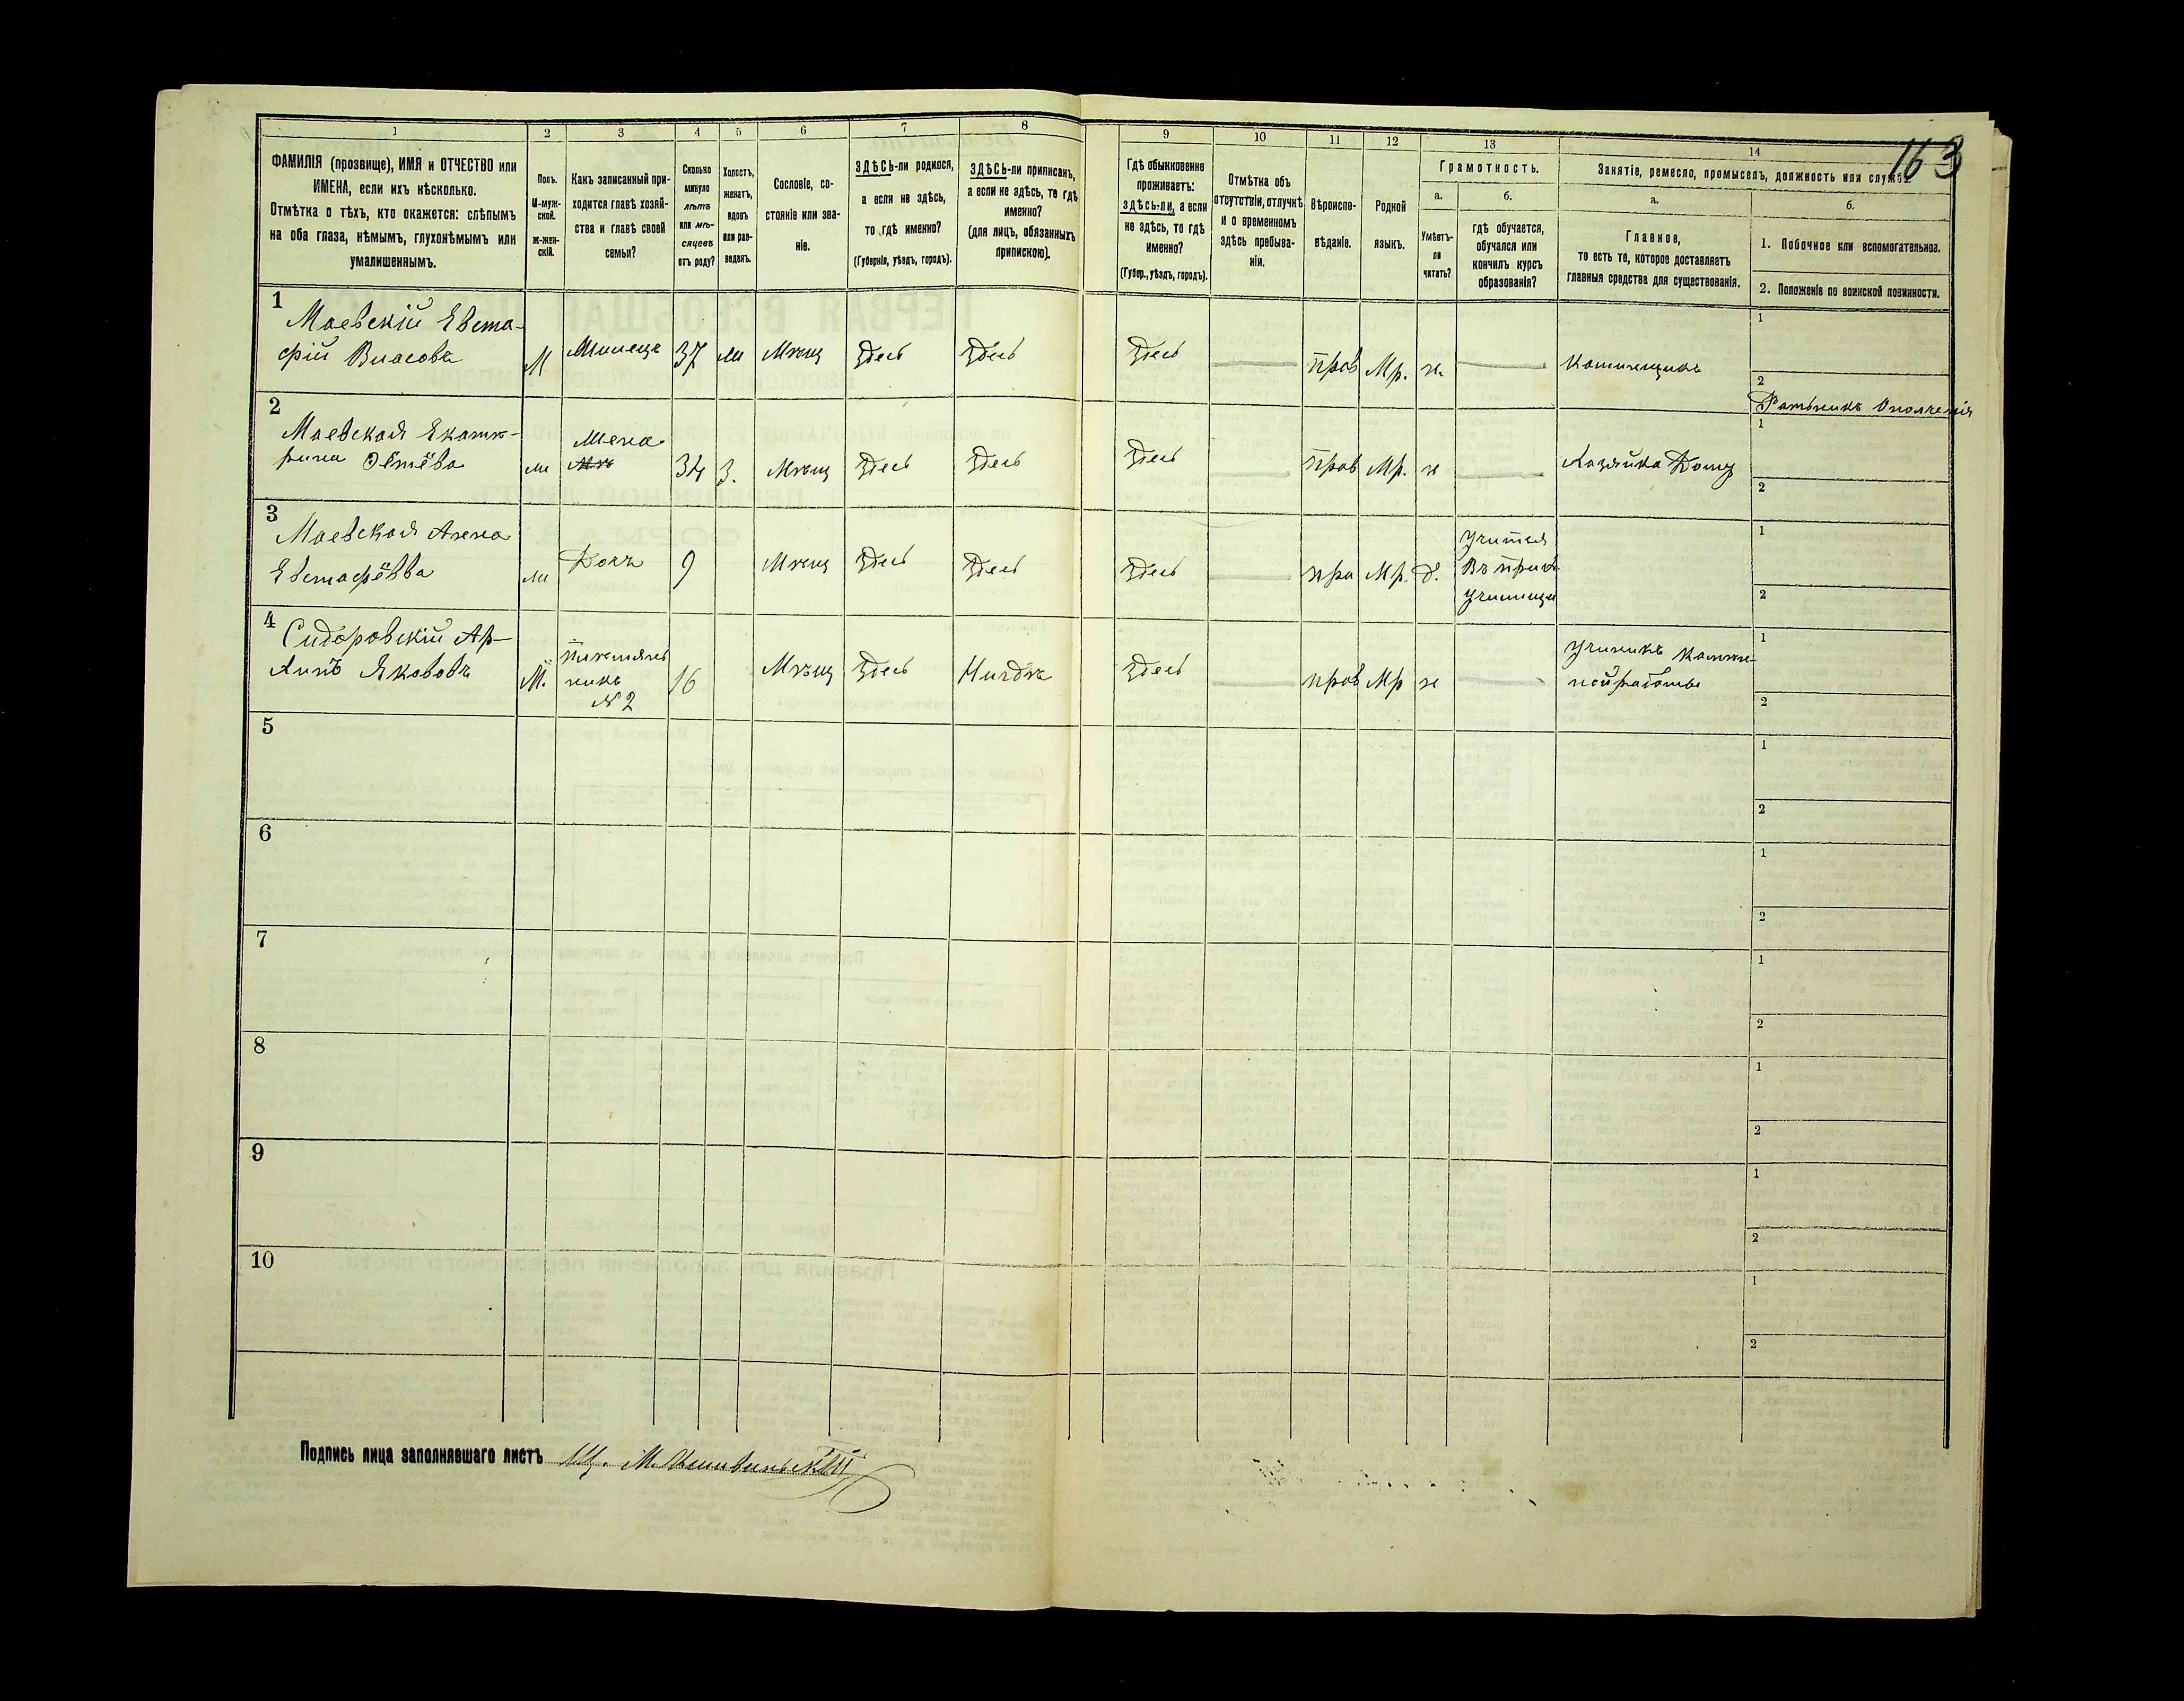 163
1
2
3
4
5
6
7
8
9
10
11
12
13
14
ФАМИЛІЯ (прозвище), ИМЯ и ОТЧЕСТВО или
ИМЕНА, если ихъ нѣсколько.
Отмѣтка о тѣхъ, кто окажется: слѣпымъ
на оба глаза, нѣмымъ, глухонѣмымъ или
умалишеннымъ.
Полъ.
М-муж-
ской.
ж-жен-
скій.
Какъ записанный при-
ходится главѣ хозяй-
ства и главѣ своей
семьи?
Сколько
минуло
лѣтъ
или мѣ-
сяцевъ
отъ роду?
Холостъ,
женатъ,
вдовъ
или раз-
веденъ.
Сословіе, со-
стояніе или зва-
ніе.
ЗДѢСЬ-ли родился,
а если не здѣсь,
то гдѣ именно?
(Губернія, уѣздъ, городъ).
ЗДѢСЬ-ли приписанъ,
а если не здѣсь, то гдѣ
именно?
(для лицъ, обязанныхъ
припискою).
Гдѣ обыкновенно
проживаетъ:
здѣсь-ли, а если
не здѣсь, то гдѣ
именно?
(Губер., уѣздъ, городъ).
Отмѣтка объ
отсутствіи, отлучкѣ
и о временномъ
здѣсь пребыва-
ніи.
Вѣроиспо-
вѣданіе.
Родной
языкъ.
Грамотность.
а.
Умѣетъ-
ли
читать?
б.
гдѣ обучается,
обучался или
кончилъ курсъ
образованія?
Занятіе, ремесло, промыселъ, должность или служба.
а.
Главное,
то есть то, которое доставляетъ
главныя средства для существованія.
б.
1. Побочное или вспомогательное.
2. Положеніе по воинской повинности.
1
Маевскій Евста-
фій Власовъ
М
37
Мѣщ
Здесь
Здесь
Здесь
прав
Мр.
н.
1
2
Ратникъ Ополченія
2
Маевская Екате-
рина
Жена
34
З.
Мѣщ
Здесь
Здесь
Здесь
прав
Мр.
н
Хазяйка Дому
1
2
3
Маевская Анна
Евстафёвва
Дочъ
9
Мѣщ
Здесь
Здесь
Здесь
пра
Мр.
Д.
Учится
Въ прих
Училищи
1
2
4
Сидоровскій Ар-
Якововъ
М.
№ 2
16
Мѣщ
Здесь
Нигдѣ
Здесь
прав
Мр
н
Ученикъ Камен-
ной работы
1
2
5
1
2
6
1
2
7
1
2
8
1
2
9
1
2
10
1
2
Подпись лица заполнявшаго листъ